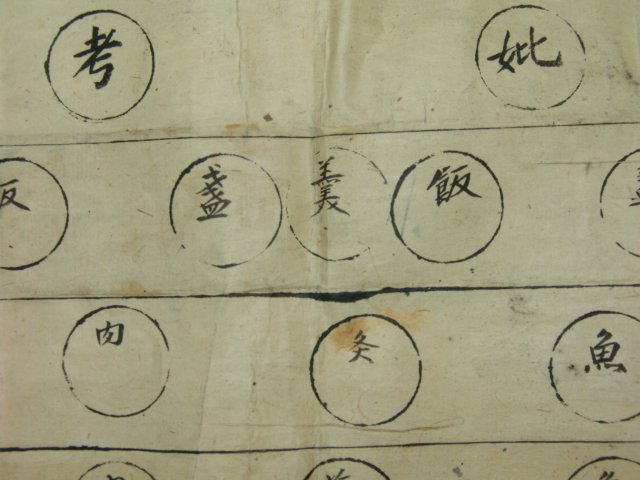 考 妣
盞 羹 飯
肉 炙 魚